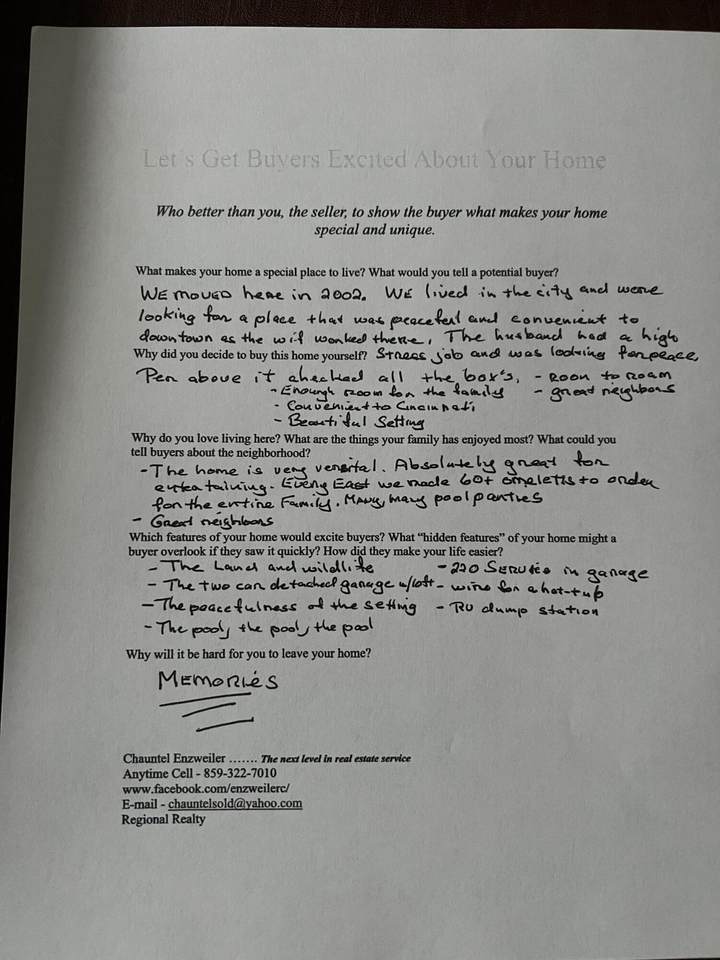 Let's Get Buyers Excited About Your Home
Who better than you, the seller, to show the buyer what makes your home
special and unique.
What makes your home a special place to live? What would you tell a potential buyer?
WE MOVED here in 2002. WE lived in the city and were
looking for a place that was peaceful and convenient to
downtown as the wif worked there. The husband had a high
Why did you decide to buy this home yourself? Stress job and was looking for peace,
Per above it checked all the box's. - Room to Roam
- Enough Room for the family - great neighbors
- Convenient to Cincinnati
- Beautiful Setting
Why do you love living here? What are the things your family has enjoyed most? What could you
tell buyers about the neighborhood?
- The home is very versital. Absolutely great for
entertaining. Every East we made 60+ omeletts to order
for the entire Family. Many, many pool parties
- Great neighbors
Which features of your home would excite buyers? What "hidden features" of your home might a
buyer overlook if they saw it quickly? How did they make your life easier?
- The Land and wildlife - 220 Service in garage
- The two car detached garage w/loft - wire for a hot-tub
- The peacefulness of the setting - RV dump station
- The pool, the pool, the pool
Why will it be hard for you to leave your home?
MEMORIES
Chauntel Enzweiler ....... The next level in real estate service
Anytime Cell - 859-322-7010
www.facebook.com/enzweilerc/
E-mail - chauntelsold@yahoo.com
Regional Realty